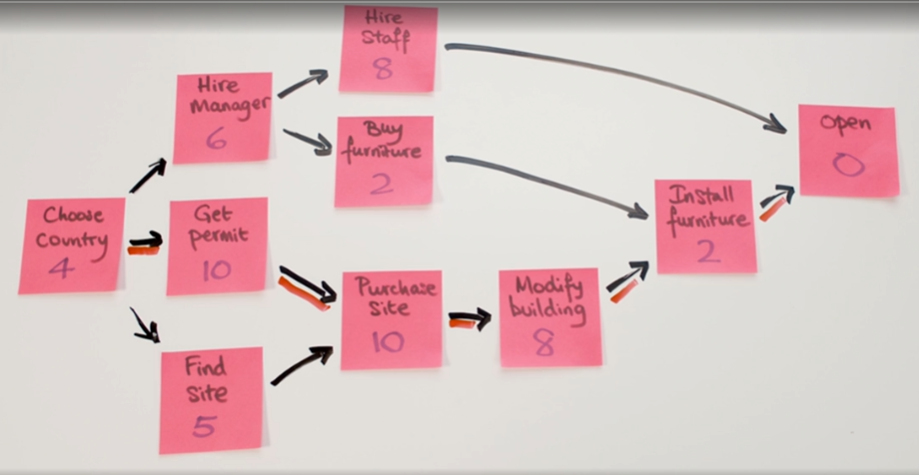 Choose
Country
4
Hire
Manager
6
Get
permit
10
Find
Site
5
Hire
Staff
8
Buy
furniture
2
Purchase
Site
10
Modify
building
8
Install
furniture
2
Open
0